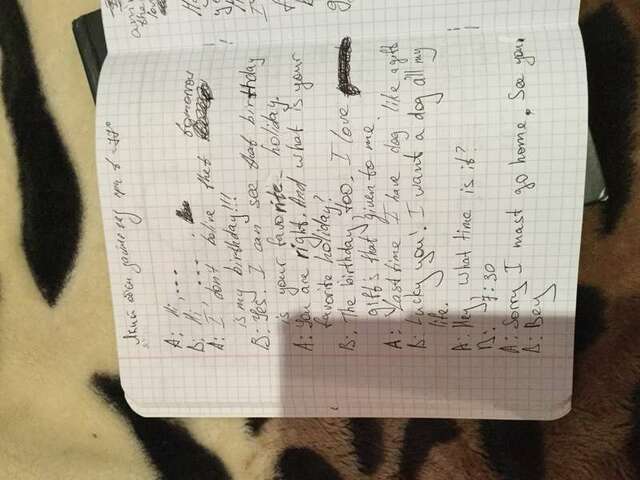 A: Hi, ....
B: Hi, ....
A: I don't belive that tomorrow
is my birthday!!!
B: Yes I can see that birthday
is your favorite holiday.
A: You are right. And what is your
favorite holiday?
B: The birthday too. I love
gift's that given to me.
A: Last time I have dog like a gift
B: Lucky you! I want a dog all my
life.
A: Hey, what time is it?
B: 7:30
A: Sorry I mast go home. See you
B: Bey